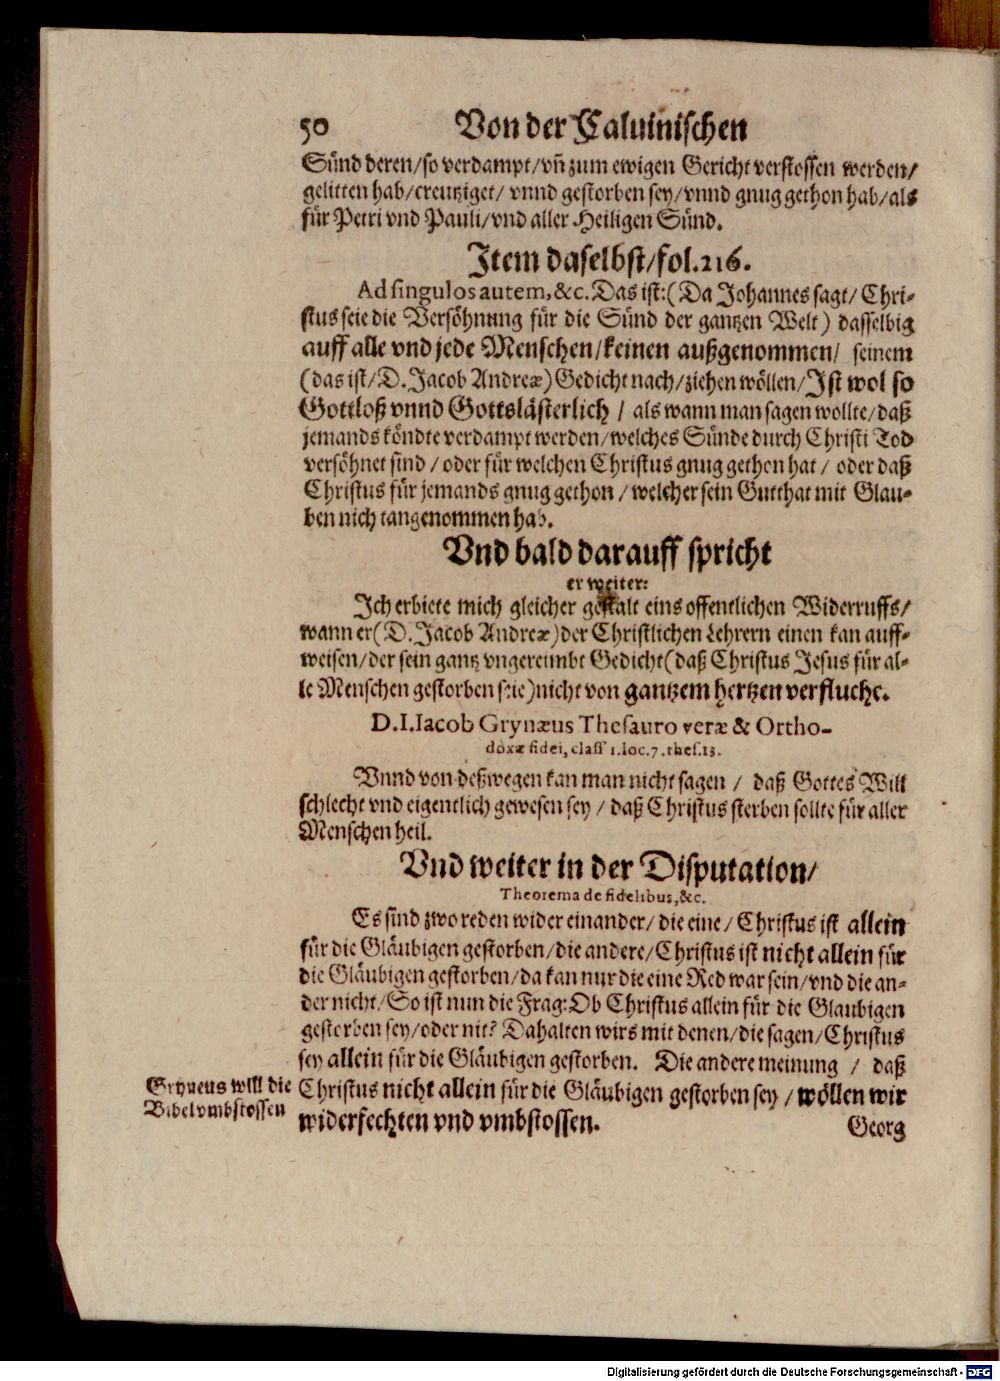 50 Von der Caluinischen
Sünd deren/so verdampt/vñ zum ewigen Gericht verstossen werden/
gelitten hab/creutziget/ vnnd gestorben sey/vnnd gnug gethon hab/als
für Petri vnd Pauli/vnd aller Heiligen Sünd.
Item daselbst/fol.216.
Ad singulos autem,&c. Das ist:(Da Johannes sagt/ Chri-
stus seie die Versöhnung für die Sünd der gantzen Welt) dasselbig
auff alle vnd jede Menschen/keinen außgenommen/ seinem
(das ist/D. Jacob Andreæ) Gedicht nach/ziehen wöllen/Ist wol so
Gottloß vnnd Gottslästerlich / als wann man sagen wollte/daß
jemands köndte verdampt werden/welches Sünde durch Christi Tod
versöhnet sind / oder für welchen Christus gnug gethon hat / oder daß
Christus für jemands gnug gethon / welcher sein Gutthat mit Glau-
ben nicht angenommen hab.
Vnd bald darauff spricht
er weiter:
Ich erbiete mich gleicher gestalt eins offentlichen Widerruffs/
wann er(D. Jacob Andreæ)der Christlichen Lehrern einen kan auff-
weisen/der sein gantz vngereumbt Gedicht(daß Christus Jesus für al-
le Menschen gestorben seie)nicht von gantzem hertzen verfluche.
D.I.Iacob Grynæus Thesauro veræ & Ortho-
doxæ fidei, class 1.loc.7.thes.13.
Vnnd von deßwegen kan man nicht sagen / daß Gottes Will
schlecht vnd eigentlich gewesen sey / daß Christus sterben sollte für aller
Menschen heil.
Vnd weiter in der Disputation/
Theorema de fidelibus,&c.
Es sind zwo reden wider einander/ die eine/ Christus ist allein
für die Gläubigen gestorben/die andere/Christus ist nicht allein für
die Gläubigen gestorben/da kan nur die eine Red war sein/vnd die an-
der nicht/So ist nun die Frag: Ob Christus allein für die Glaubigen
gestorben sey/oder nit? Da halten wirs mit denen/die sagen/Christus
sey allein für die Gläubigen gestorben. Die andere meinung / daß
Christus nicht allein für die Gläubigen gestorben sey / wöllen wir
widerfechten vnd vmbstossen.
Gryneus will die
Bibel vmbstossen
Georg
Digitalisierung gefördert durch die Deutsche Forschungsgemeinschaft - DFG